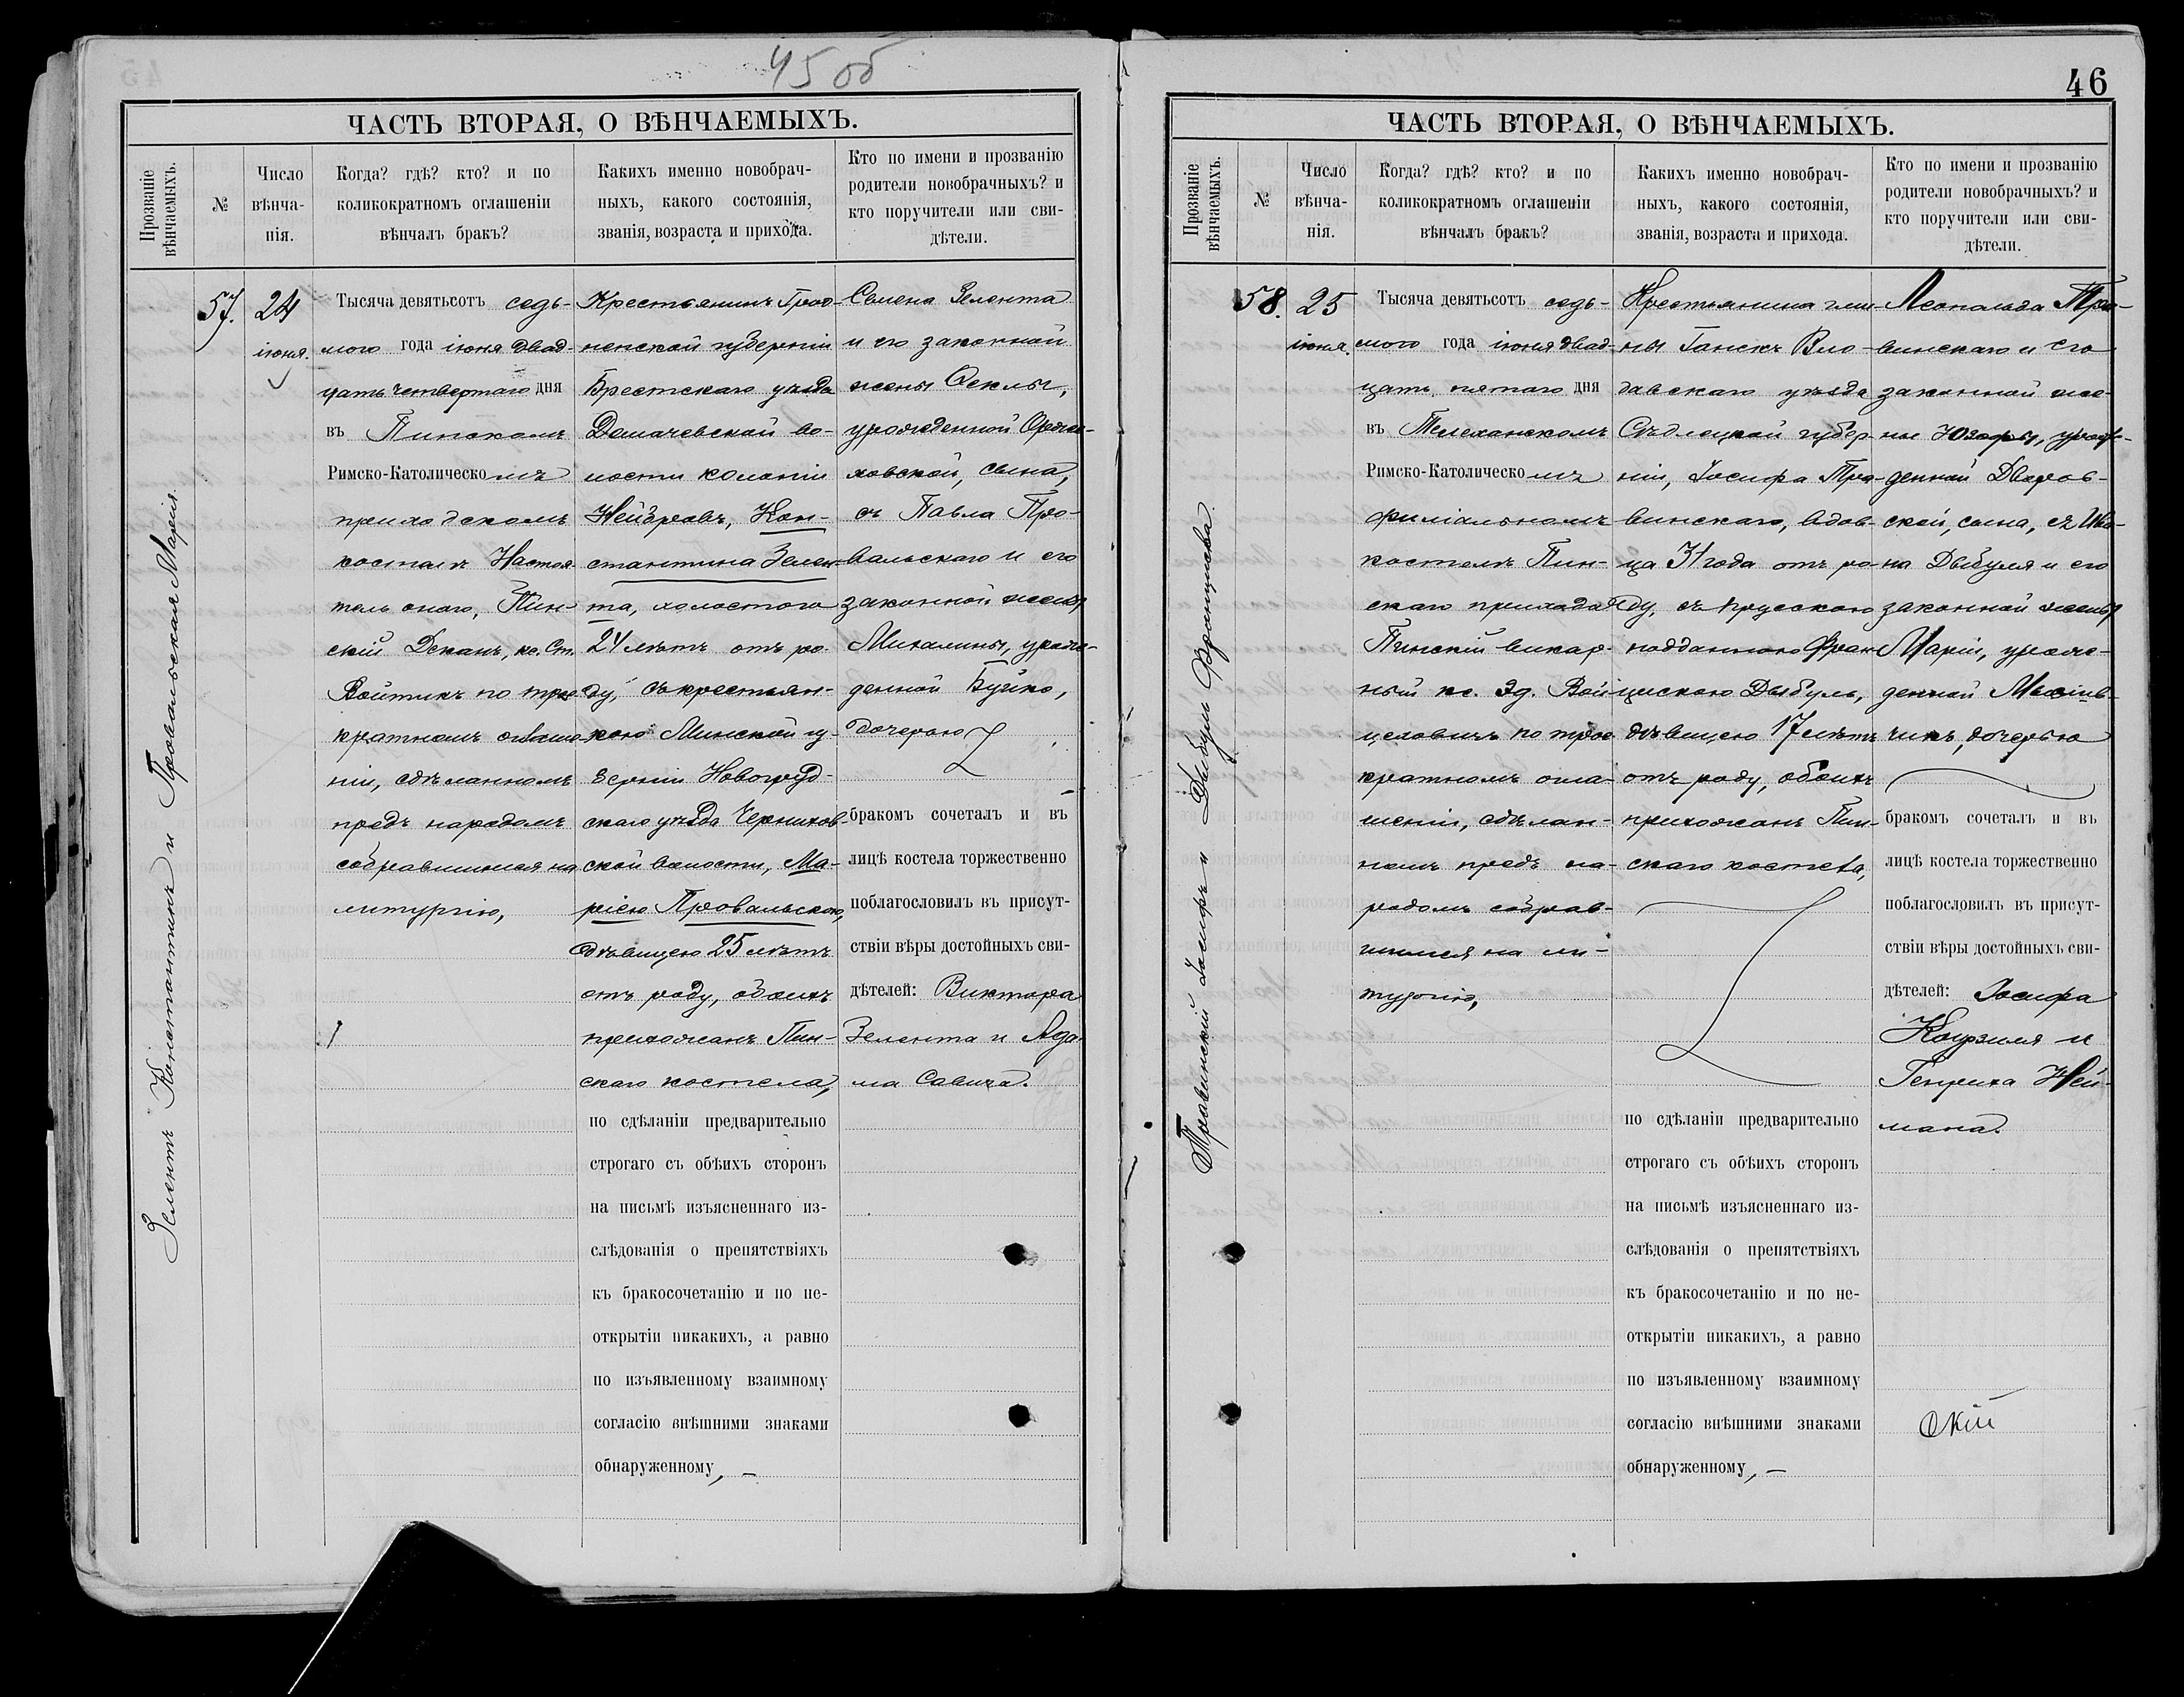 45 об
ЧАСТЬ ВТОРАЯ, О ВѢНЧАЕМЫХЪ.
Прозваніе вѣнчаемыхъ.
№
Число
вѣнча-
нія.
Когда? гдѣ? кто? и по
коликократномъ оглашеніи
вѣнчалъ бракъ?
Какихъ именно новобрач-
ныхъ, какого состоянія,
званія, возраста и прихода.
Кто по имени и прозванію
родители новобрачныхъ? и
кто поручители или сви-
дѣтели.
Зелентъ Константинъ и Провальская Марія.
57.
24
іюня.
Тысяча девятьсотъ седь-
мого года іюня двад-
цать четвертаго дня
въ Пинскомъ
Римско-Католическомъ
приходскомъ
костелѣ Настоя-
тель онаго, Пин-
скій Деканъ, кс. Ст.
Войтикъ по трое-
кратномъ оглаше-
ніи, сдѣланномъ
предъ народомъ
собравшимся на
литургію,
Крестьянинъ Грод-
ненской губерніи
Брестскаго уѣзда
Домачевской во-
лости колоніи
Нейдровъ, Кон-
стантина Зелен-
та, холостого
24 лѣтъ отъ ро-
ду, съ крестьян-
кою Минской гу-
берніи Новогруд-
скаго уѣзда Чернихов-
ской волости, Ма-
ріею Провальскою,
дѣвицею 25 лѣтъ
отъ роду, обоихъ
прихожанъ Пин-
скаго костела,
по сдѣланіи предварительно
строгаго съ обѣихъ сторонъ
на письмѣ изъясненнаго из-
слѣдованія о препятствіяхъ
къ бракосочетанію и по не-
открытіи никакихъ, а равно
по изъявленному взаимному
согласію внѣшними знаками
обнаруженному, —
Семена Зелента
и его законной
жены Феклы,
урожденной Орже-
ховской, сына,
съ Павла Про-
вальскаго и его
законной жены
Михалины, урож-
денной Буйко,
дочерью
бракомъ сочеталъ и въ
лицѣ костела торжественно
поблагословилъ въ присут-
ствіи вѣры достойныхъ сви-
дѣтелей: Виктора
Зелента и Ада-
ма Савича.
46
ЧАСТЬ ВТОРАЯ, О ВѢНЧАЕМЫХЪ.
Прозваніе вѣнчаемыхъ.
№
Число
вѣнча-
нія.
Когда? гдѣ? кто? и по
коликократномъ оглашеніи
вѣнчалъ бракъ?
Какихъ именно новобрач-
ныхъ, какого состоянія,
званія, возраста и прихода.
Кто по имени и прозванію
родители новобрачныхъ? и
кто поручители или сви-
дѣтели.
Травинскій Іосифъ и Дыбуль Францишка.
58.
25
іюня.
Тысяча девятьсотъ седь-
мого года іюня двад-
цать пятаго дня
въ Телеханскомъ
Римско-Католическомъ
филіальномъ
костелѣ Пин-
скаго прихода
Пинскій викар-
ный кс. Эд. Вой-
цеховичъ по трое-
кратномъ огла-
шеніи, сдѣлан-
номъ предъ на-
родомъ собрав-
шимся на ли-
тургію,
Крестьянина гми-
ны Ганскъ Вло-
давскаго уѣзда
Сѣдлецкой губер-
ніи, Іосифа Тра-
винскаго, вдов-
ца 31 года отъ ро-
ду, съ прусскою
подданною Фран-
цискою Дыбуль,
дѣвицею 17 лѣтъ
отъ роду, обоихъ
прихожанъ Пин-
скаго костела,
по сдѣланіи предварительно
строгаго съ обѣихъ сторонъ
на письмѣ изъясненнаго из-
слѣдованія о препятствіяхъ
къ бракосочетанію и по не-
открытіи никакихъ, а равно
по изъявленному взаимному
согласію внѣшними знаками
обнаруженному, —
Леопольда Тра-
винскаго и его
законной же-
ны Юзефы, урож-
денной Дворов-
ской, сына, съ Ива-
на Дыбуля и его
законной жены
Маріи, урож-
денной
дочерью
бракомъ сочеталъ и въ
лицѣ костела торжественно
поблагословилъ въ присут-
ствіи вѣры достойныхъ сви-
дѣтелей: Іосифа
и
Генриха Ней-
мана.
скій